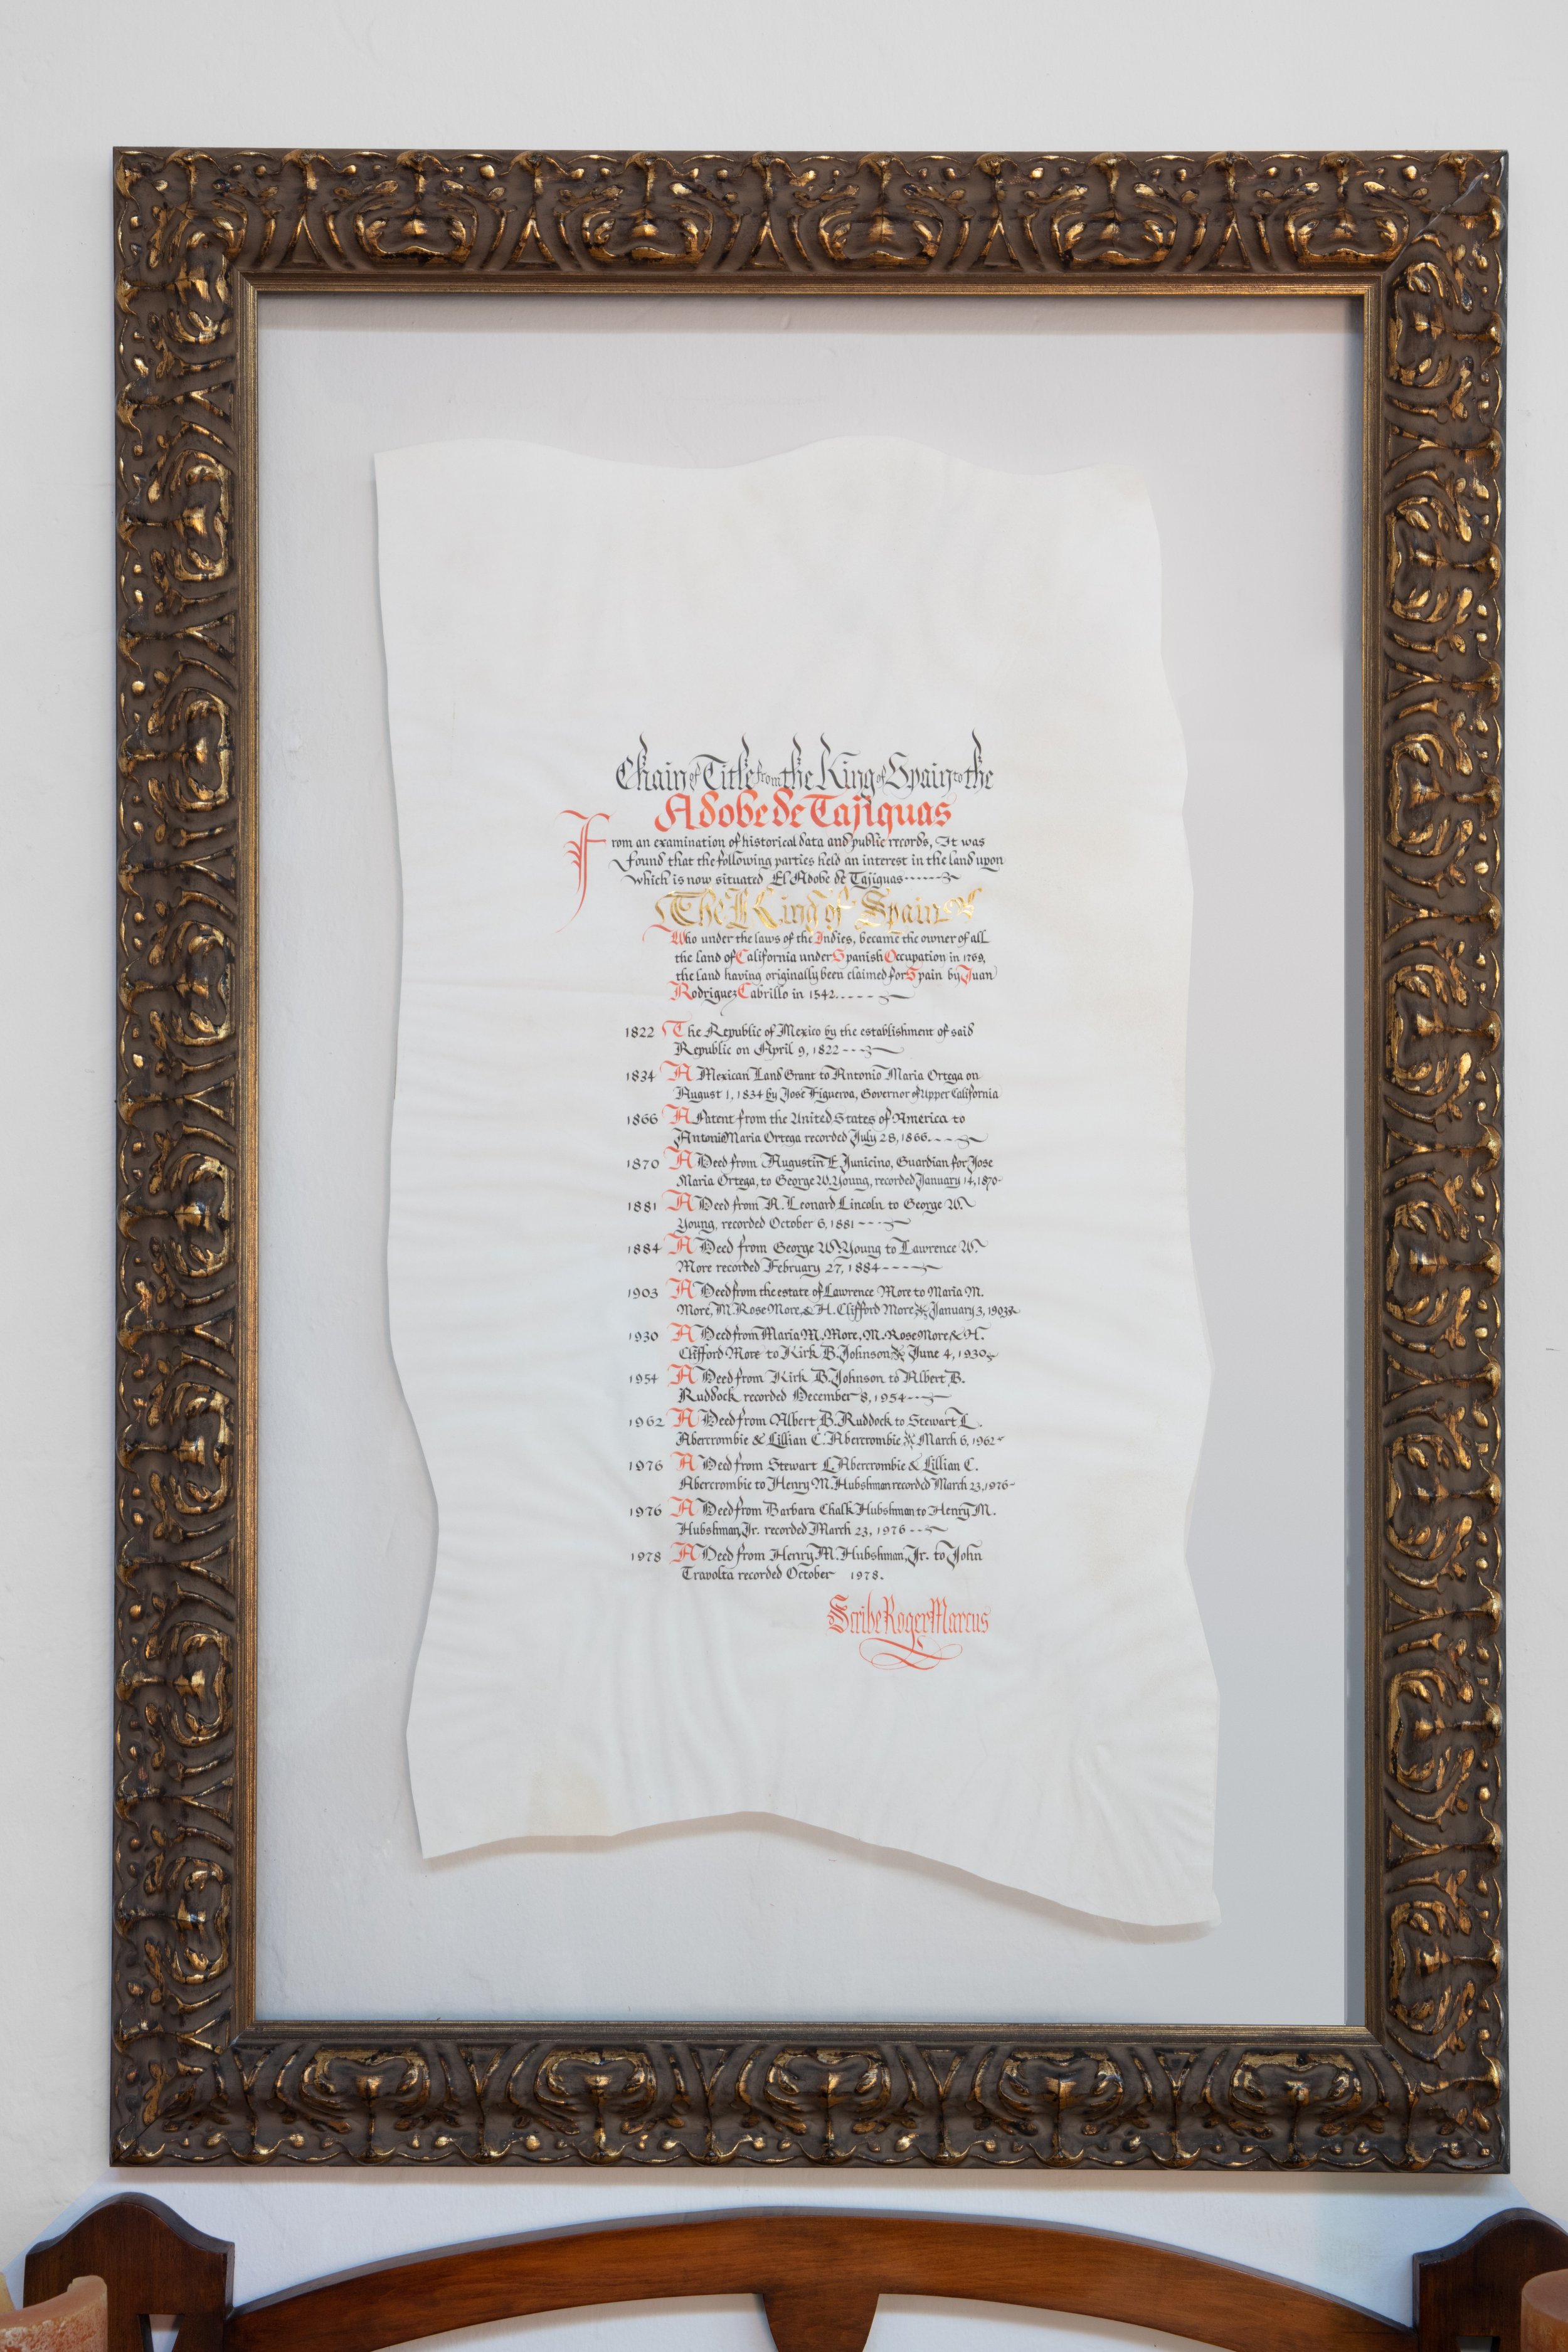 Chain of Title from the King of Spain to the
Adobe de Tajiguas
From an examination of historical data and public records, It was
found that the following parties held an interest in the land upon
which is now situated El Adobe de Tajiguas
The King of Spain
Who under the laws of the Indies, became the owner of all
the land of California under Spanish Occupation in 1769,
the land having originally been claimed for Spain by Juan
Rodriguez Cabrillo in 1542
1822 The Republic of Mexico by the establishment of said
Republic on April 9, 1822
1834 A Mexican Land Grant to Antonio Maria Ortega on
August 1, 1834 by José Figueroa, Governor of Upper California
1866 A Patent from the United States of America to
Antonio Maria Ortega recorded July 28, 1866
1870 A Deed from Augustin E. Junicino, Guardian for Jose
Maria Ortega, to George W. Young, recorded January 14, 1870
1881 A Deed from A. Leonard Lincoln to George W.
Young, recorded October 6, 1881
1884 A Deed from George W. Young to Lawrence W.
More recorded February 27, 1884
1903 A Deed from the estate of Lawrence More to Maria M.
More, M. Rose More, & H. Clifford More January 3, 1903
1930 A Deed from Maria M. More, M. Rose More & H.
Clifford More to Kirk B. Johnson June 4, 1930
1954 A Deed from Kirk B. Johnson to Albert B.
Ruddock recorded December 8, 1954
1962 A Deed from Albert B. Ruddock to Stewart L.
Abercrombie & Lillian C. Abercrombie March 6, 1962
1976 A Deed from Stewart L. Abercrombie & Lillian C.
Abercrombie to Henry M. Hubshman recorded March 23, 1976
1976 A Deed from Barbara Chalk Hubshman to Henry M.
Hubshman, Jr. recorded March 23, 1976
1978 A Deed from Henry M. Hubshman, Jr. to John
Travolta recorded October 1978.
Scribe Roger Marcus